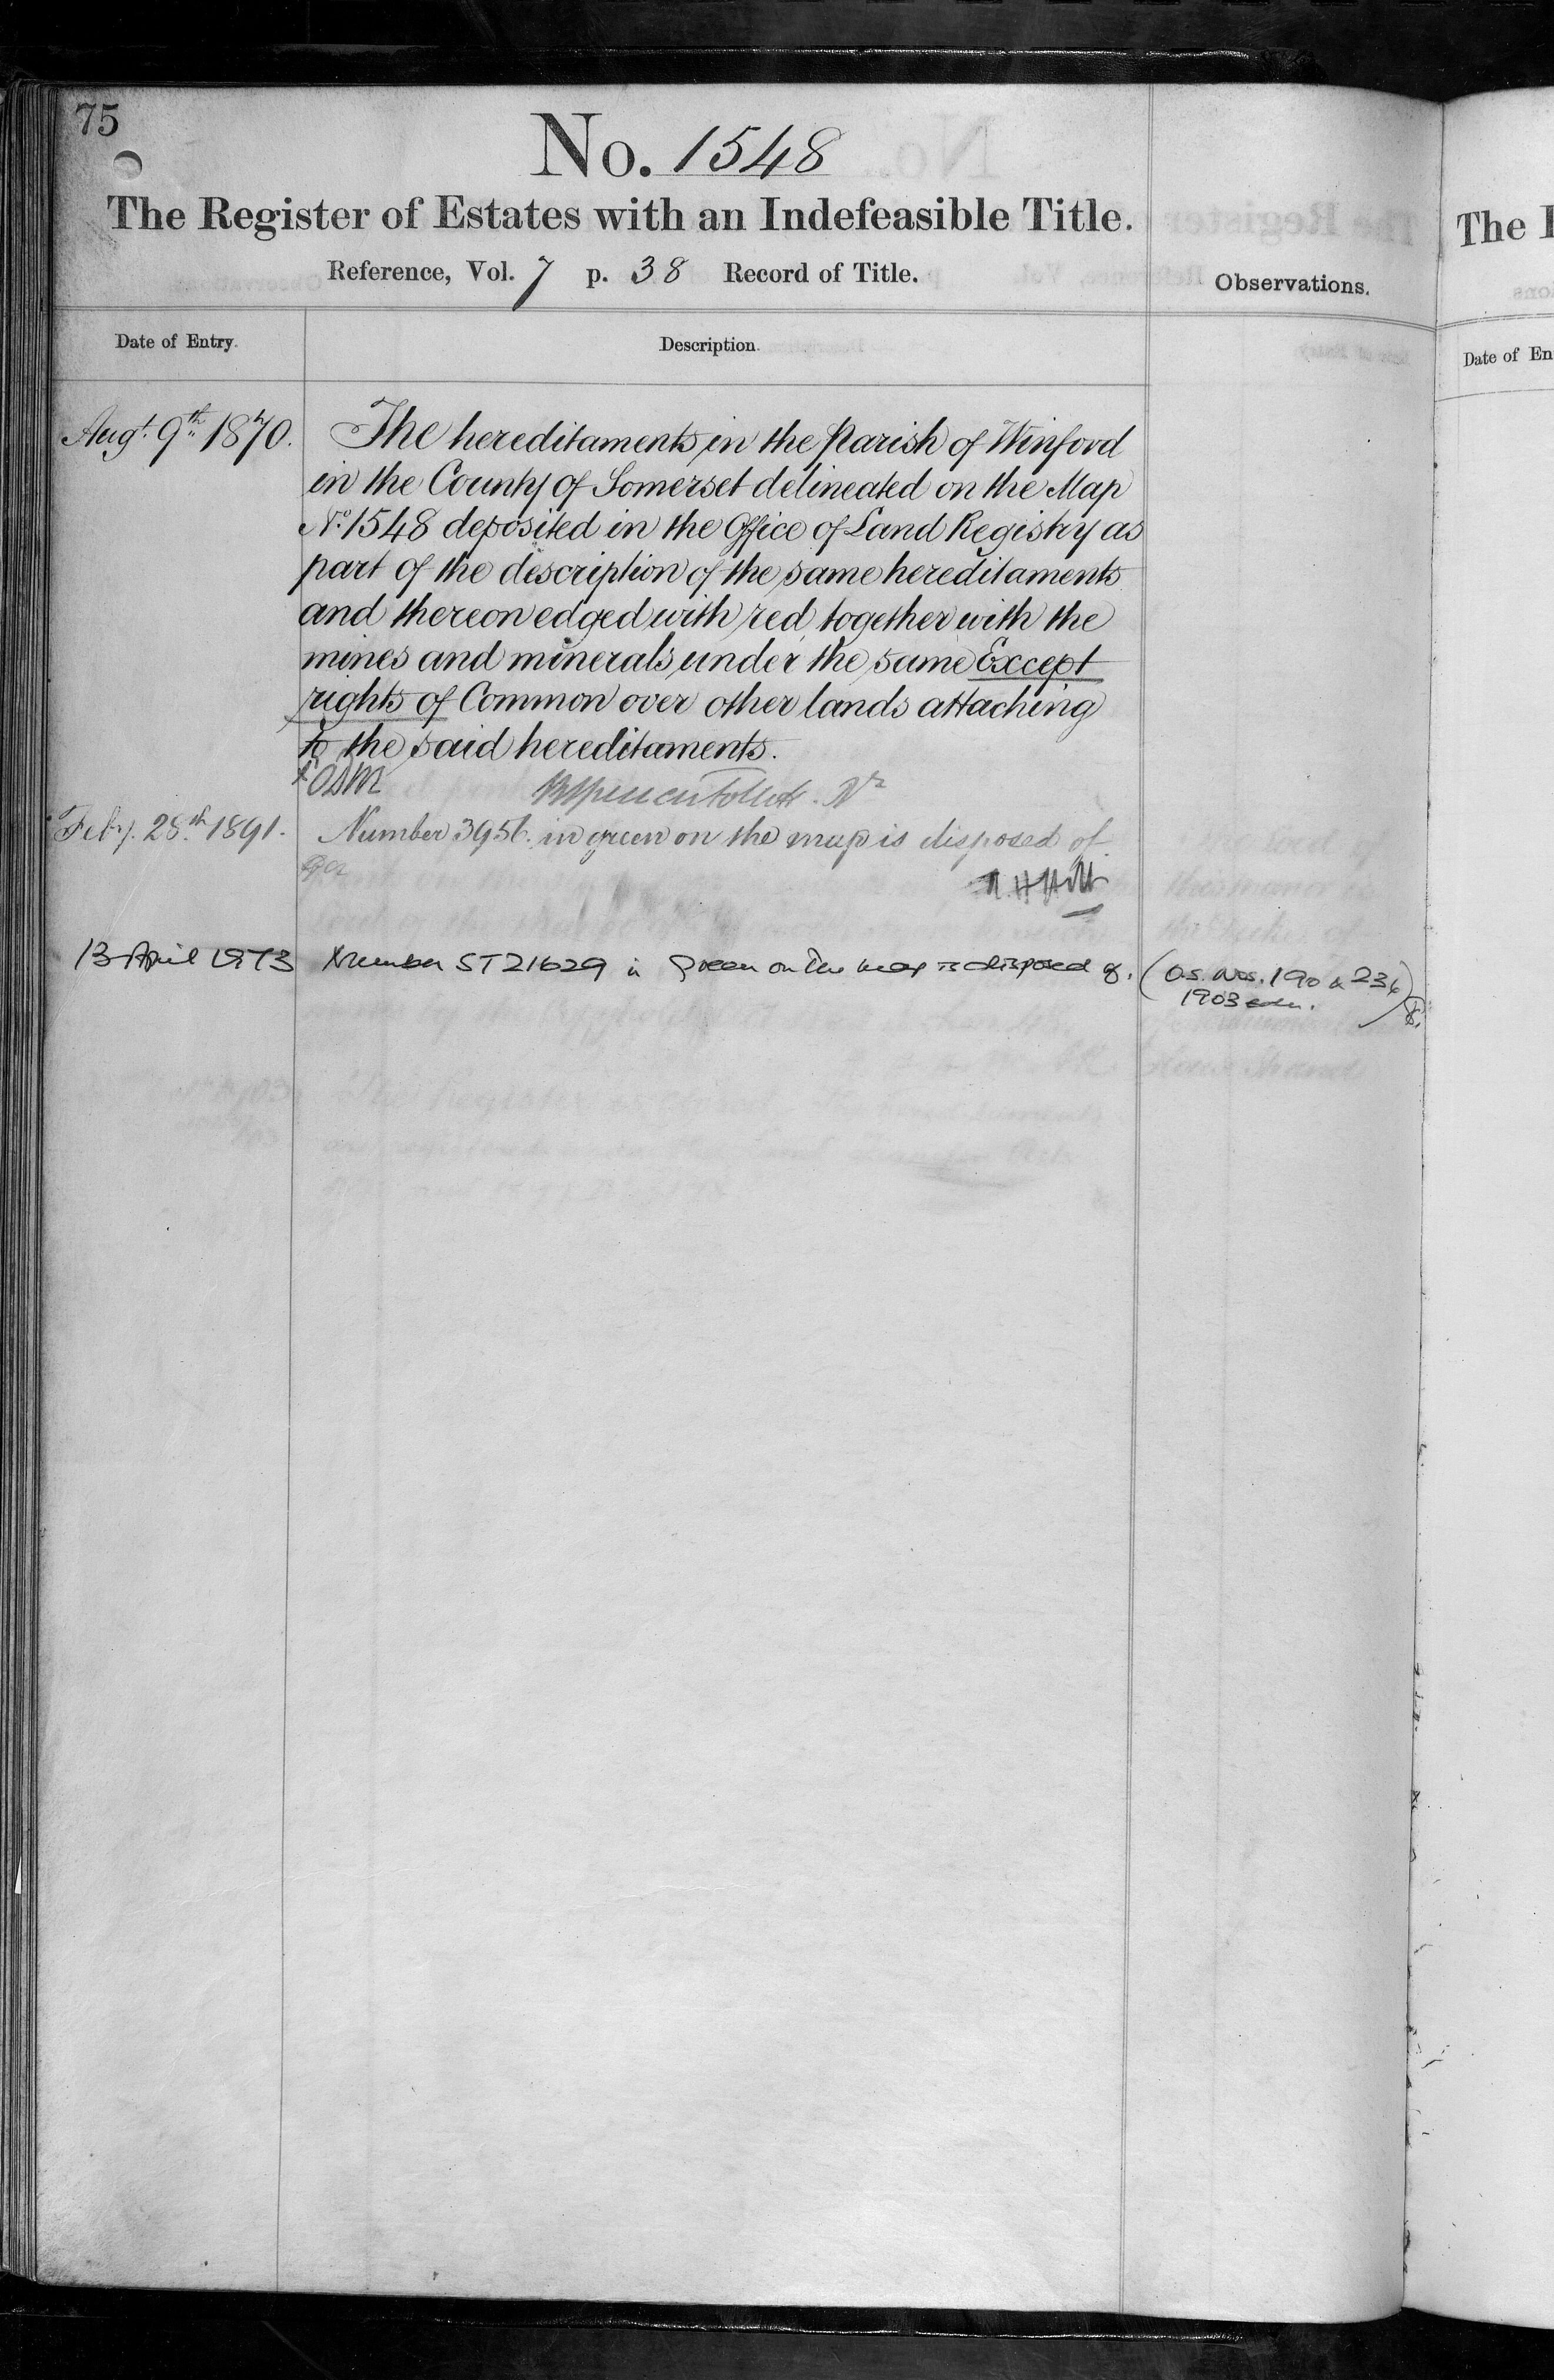 75
No. 1548
The Register of Estates with an Indefeasible Title.
Reference, Vol. 7 p. 38 Record of Title.
Observations.
Date of Entry.
Description.
Augt. 9th 1870.
The hereditaments in the Parish of Winford
in the County of Somerset delineated on the Map
No. 1548 deposited in the Office of Land Registry as
part of the description of the same hereditaments
and thereon edged with red, together with the
mines and minerals under the same Except
rights of Common over other lands attaching
to the said hereditaments.
Feby. 28th 1891.
Number 3956. in green on the map is disposed of
13 April 1973
Number ST21629 in green on the map is disposed of.
(O.S. Nos. 190 & 236
1903 edn.)
The
Date of En